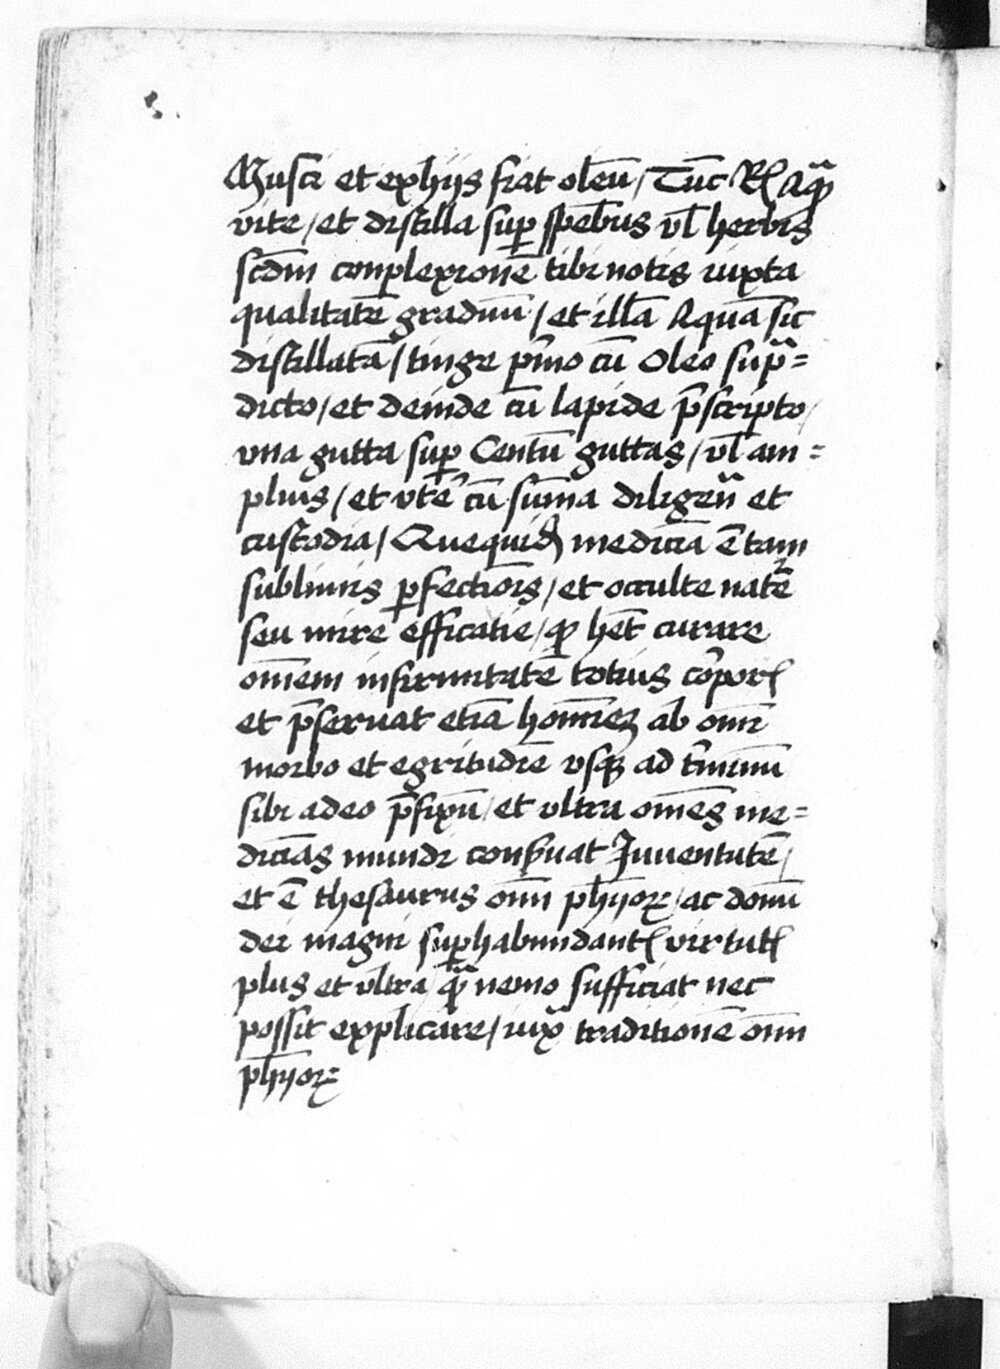 Musci et exhijs fiat oleū / Tūc R͛ Aqᷓ
vite / et distilla sup̱ spēbus vl̄ herbis
scd̄m conplexionē tibi notis iuxta
qualitatē graduū / et illā Aquā sic
distillatā / tinge p̄mo cū Oleo supᷓ=
dicto / et deinde cū lapide p̄scripto /
vna gutta sup̱ Centū guttas / vl̄ am=
plius / et vtē cū sum̄a diligen̄ et
custodia / Quequid̄ medicīa ē tam
sublimis p̱fectiōis / et occulte natᷓe
seu mire efficatie / qꝫ hēt curare
om̄em infirmitatē totius corporꝭ
et p̄seruat etiā homīeꝫ ab om̄i
morbo et egritudīe vsqꝫ ad t̄minū
sibi adeo p̄fixū / et vltra om̄es me=
dicīas mundi conẜuat Juuentutē /
et ē thesaurus om̄i ph̄ijoꝝ / ac donū
dei magni suꝑhabundantꝭ virtutꝭ
plus et vl̄tra / qᷓꝫ nemo sufficiat nec
possit explicare / iuxᷓ traditionē om̄i
ph̄ijoꝝ